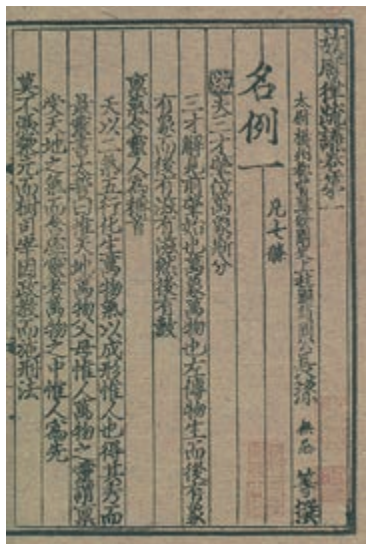 故唐律疏議卷第一
太尉揚州都督監修國史上柱國趙國公長孫 無忌 等撰
名例一 凡七條
疏夫三才肇位萬象斯分
三才解見前肇始也萬象萬物也左傳物生而後有象
有象而後有滋滋然後有數
稟氣含靈人為稱首
天以二氣五行化生萬物氣以成形惟人也得其秀而
最靈書太誓曰惟天地萬物父母惟人萬物之靈謂稟
受天地之氣而含虛靈者萬物之中惟人為先
莫不憑黎元而樹司宰因政教而施刑法